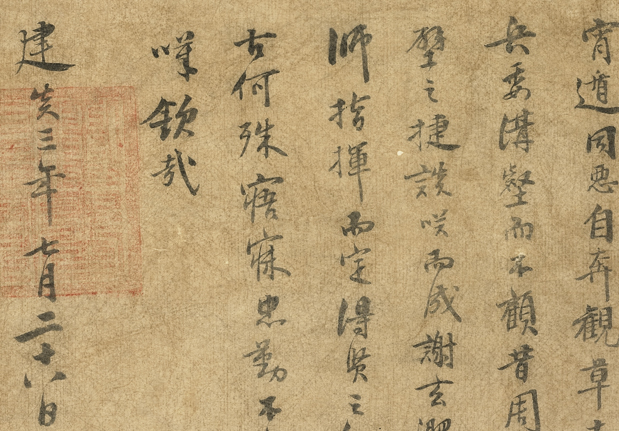 宵遁同惡自奔觀草
兵委溝壑而不顧昔周
壁之捷談咲而成謝玄淝
師指揮而定得賢之
古何殊寤寐忠勤不
嘆欽哉
建炎三年七月二十八日